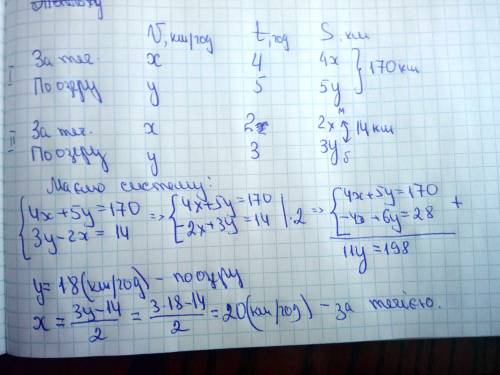 V, км/год t, год S, км
I За теч. x 4 4x } 170 км
По озеру y 5 5y
II За теч. x 2 2x м 14 км
По озеру y 3 3y б
Маємо систему:
{ 4x+5y=170 3y-2x=14 => { 4x+5y=170 -2x+3y=14 |·2 => { 4x+5y=170 -4x+6y=28 +
11y=198
y=18(км/год) - по озеру
x = 3y-14/2 = 3·18-14/2 = 20(км/год) - за течією.